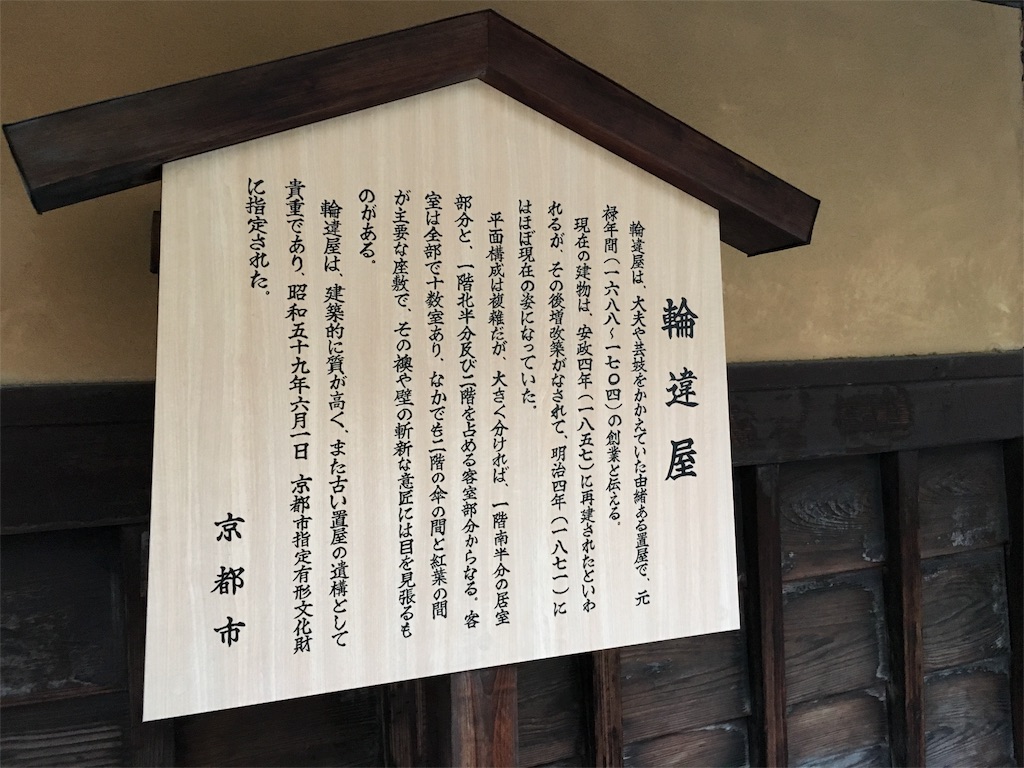 輪違屋
輪違屋は、大夫や芸妓をかかえていた由緒ある置屋で、元
禄年間(一六八八〜一七〇四)の創業と伝える。
現在の建物は、安政四年(一八五七)に再建されたといわ
れるが、その後増改築がなされて、明治四年(一八七一)に
はほぼ現在の姿になっていた。
平面構成は複雑だが、大きく分ければ、一階南半分の居室
部分と、一階北半分及び二階を占める客室部分からなる。客
室は全部で十数室あり、なかでも二階の傘の間と紅葉の間
が主要な座敷で、その襖や壁の斬新な意匠には目を見張るも
のがある。
輪違屋は、建築的に質が高く、また古い置屋の遺構として
貴重であり、昭和五十九年六月一日 京都市指定有形文化財
に指定された。
京都市